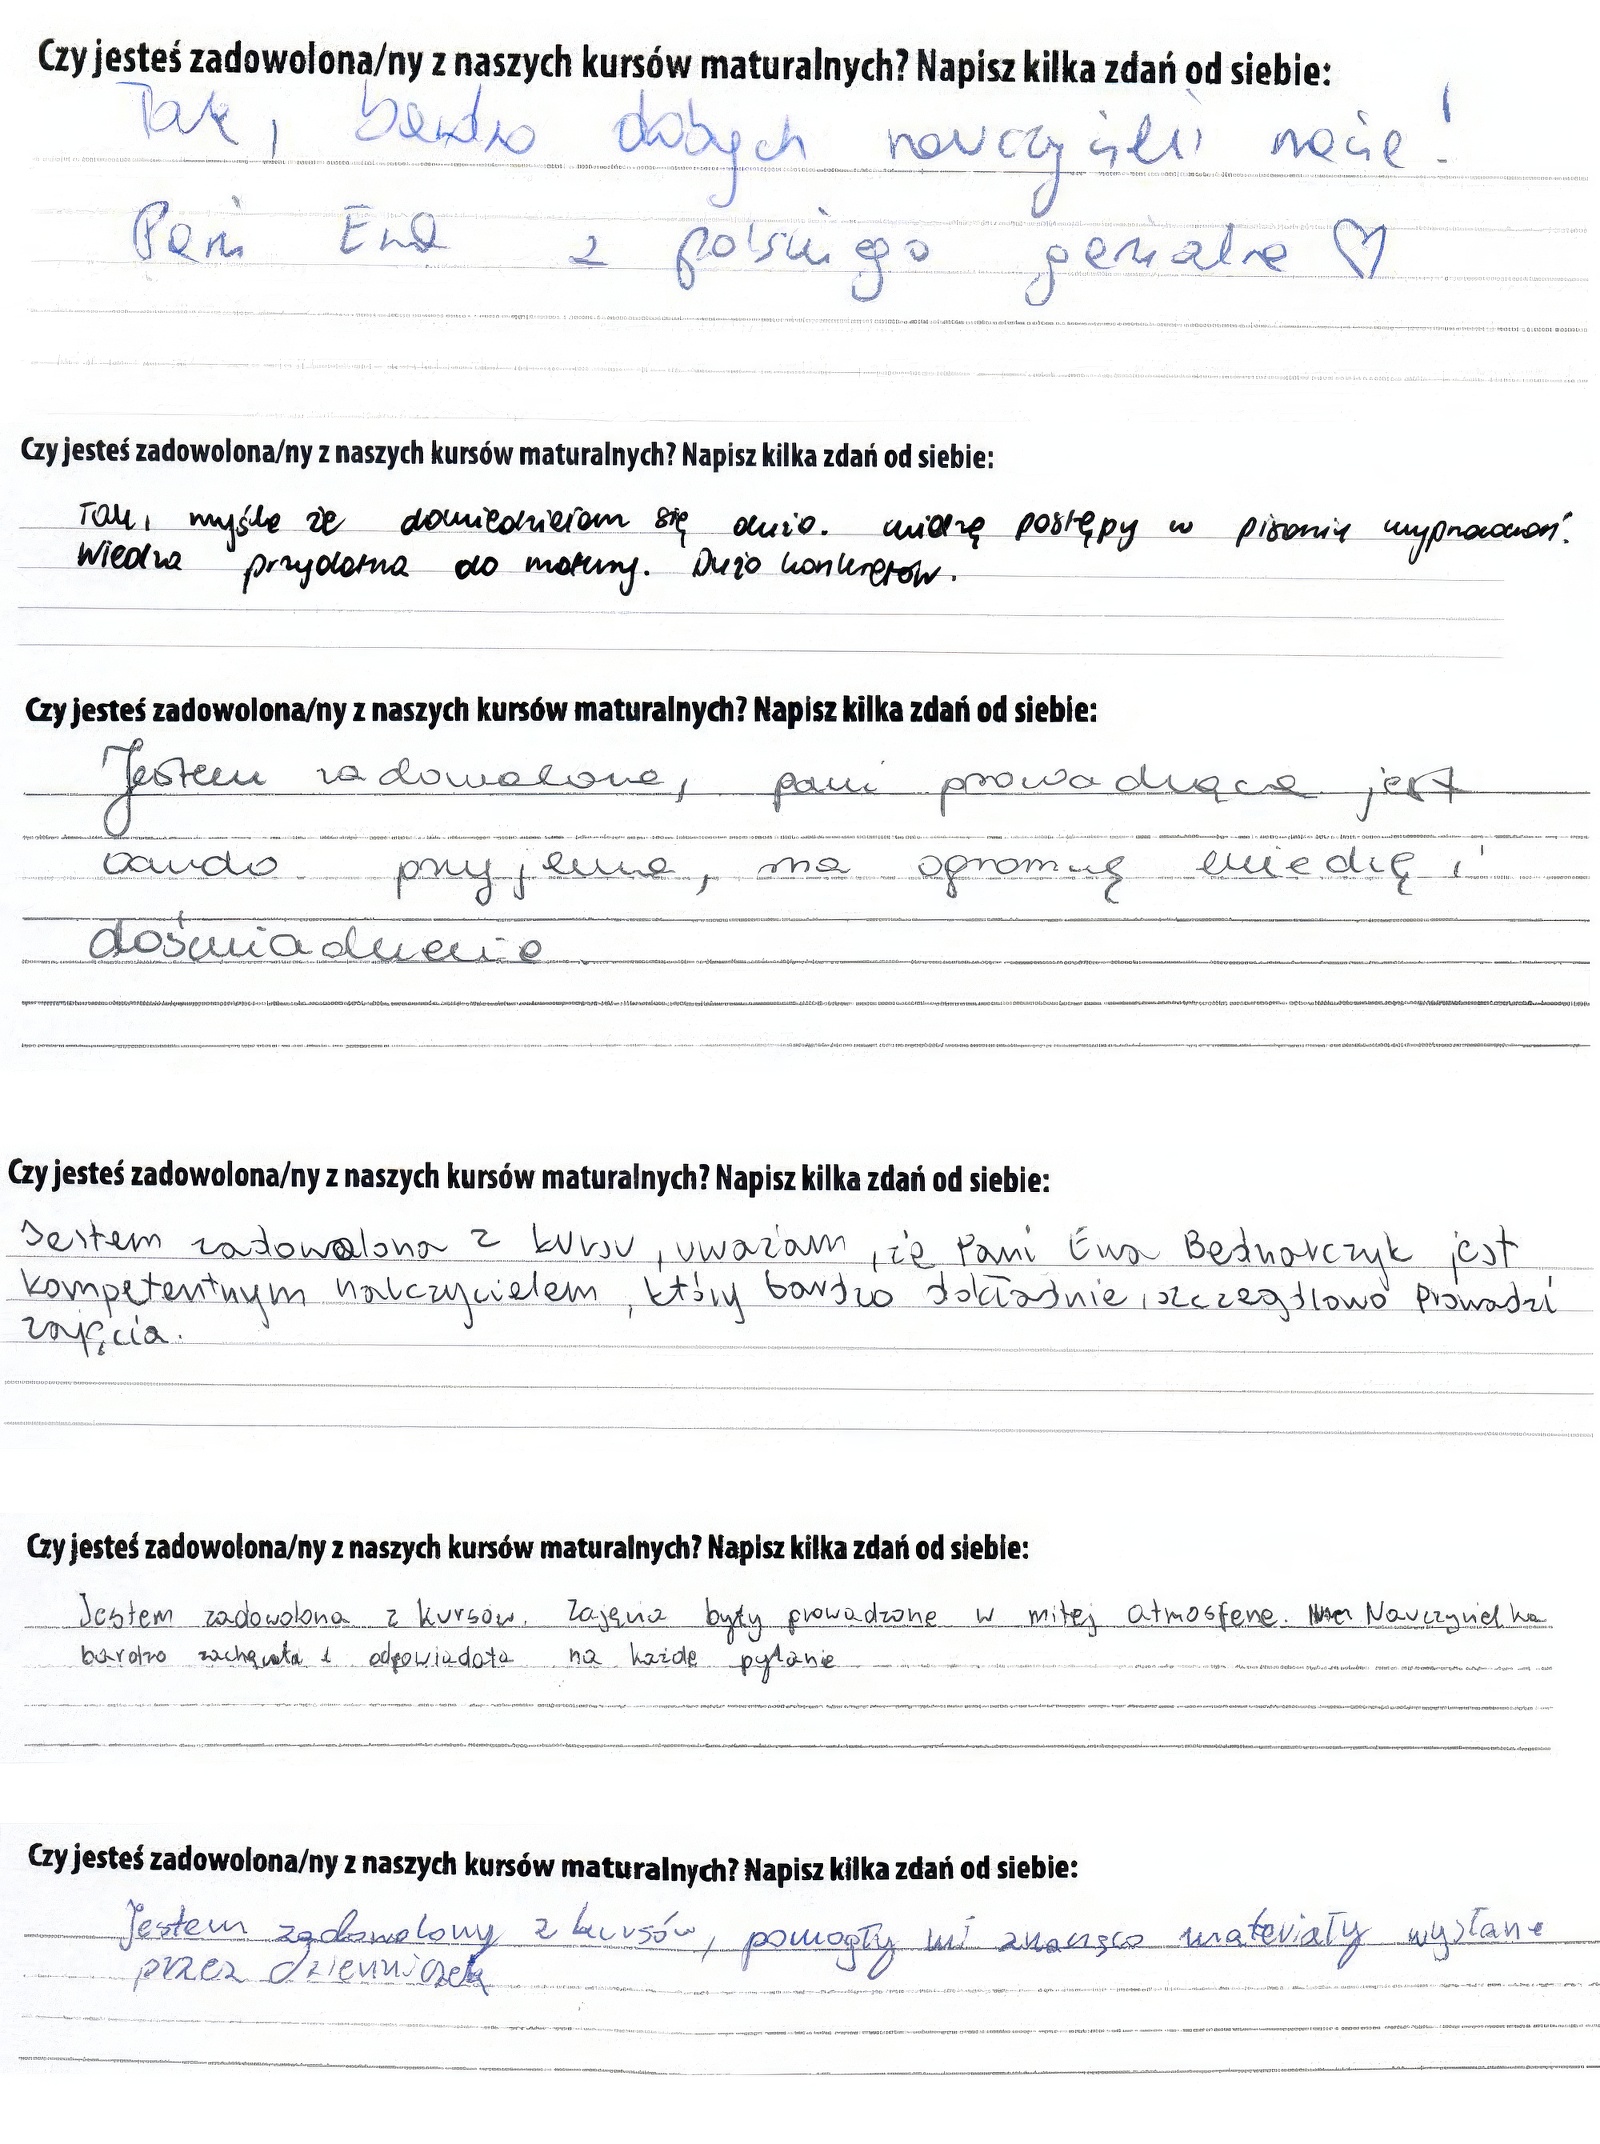 Czy jesteś zadowolona/ny z naszych kursów maturalnych? Napisz kilka zdań od siebie:
Tak, bardzo dobrych nauczycieli macie!
Pani Ewa z polskiego genialna ♡
Czy jesteś zadowolona/ny z naszych kursów maturalnych? Napisz kilka zdań od siebie:
Tak, myślę że dowiedziałam się dużo. widzę postępy w pisaniu wypracowań.
Wiedza przydatna do matury. Dużo konkretów.
Czy jesteś zadowolona/ny z naszych kursów maturalnych? Napisz kilka zdań od siebie:
Jestem zadowolona, pani prowadząca jest
bardo przyjemna, ma ogromną wiedzę i
doświadczenie
Czy jesteś zadowolona/ny z naszych kursów maturalnych? Napisz kilka zdań od siebie:
Jestem zadowolona z kursu, uważam, że Pani Ewa Bednarczyk jest
kompetentnym nauczycielem, który bardzo dokładnie, szczegółowo prowadzi
zajęcia.
Czy jesteś zadowolona/ny z naszych kursów maturalnych? Napisz kilka zdań od siebie:
Jestem zadowolona z kursów. Zajęcia były prowadzone w miłej atmosferze. Nauczycielka
bardzo zachęcała i odpowiadała na każde pytanie
Czy jesteś zadowolona/ny z naszych kursów maturalnych? Napisz kilka zdań od siebie:
Jestem zadowolony z kursów, pomogły mi znacząco materiały wysłane
przez dzienniczek